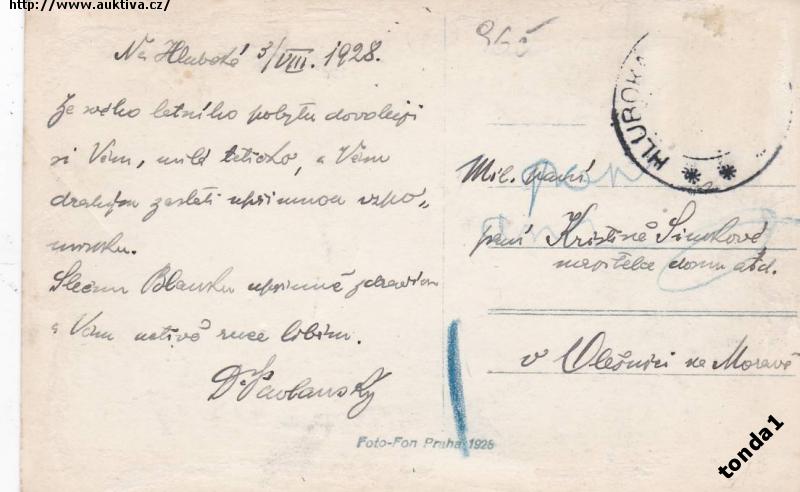 http://www.auktiva.cz/
Na Hluboké 3/VIII. 1928.
Ze svého letního pobytu dovoluji
si Vám, milá tetičko, a Vám
drahým zaslati upřímnou vzpo-
mínku.
Slečnu Blanku upřímně zdravím
a Vám uctivě ruce líbám.
HLUBOKÁ
Mil. paní
paní Kristině Simkové
majitelce domu atd.
v Olešnici na Moravě
Foto-Fon Praha 1928
tonda1